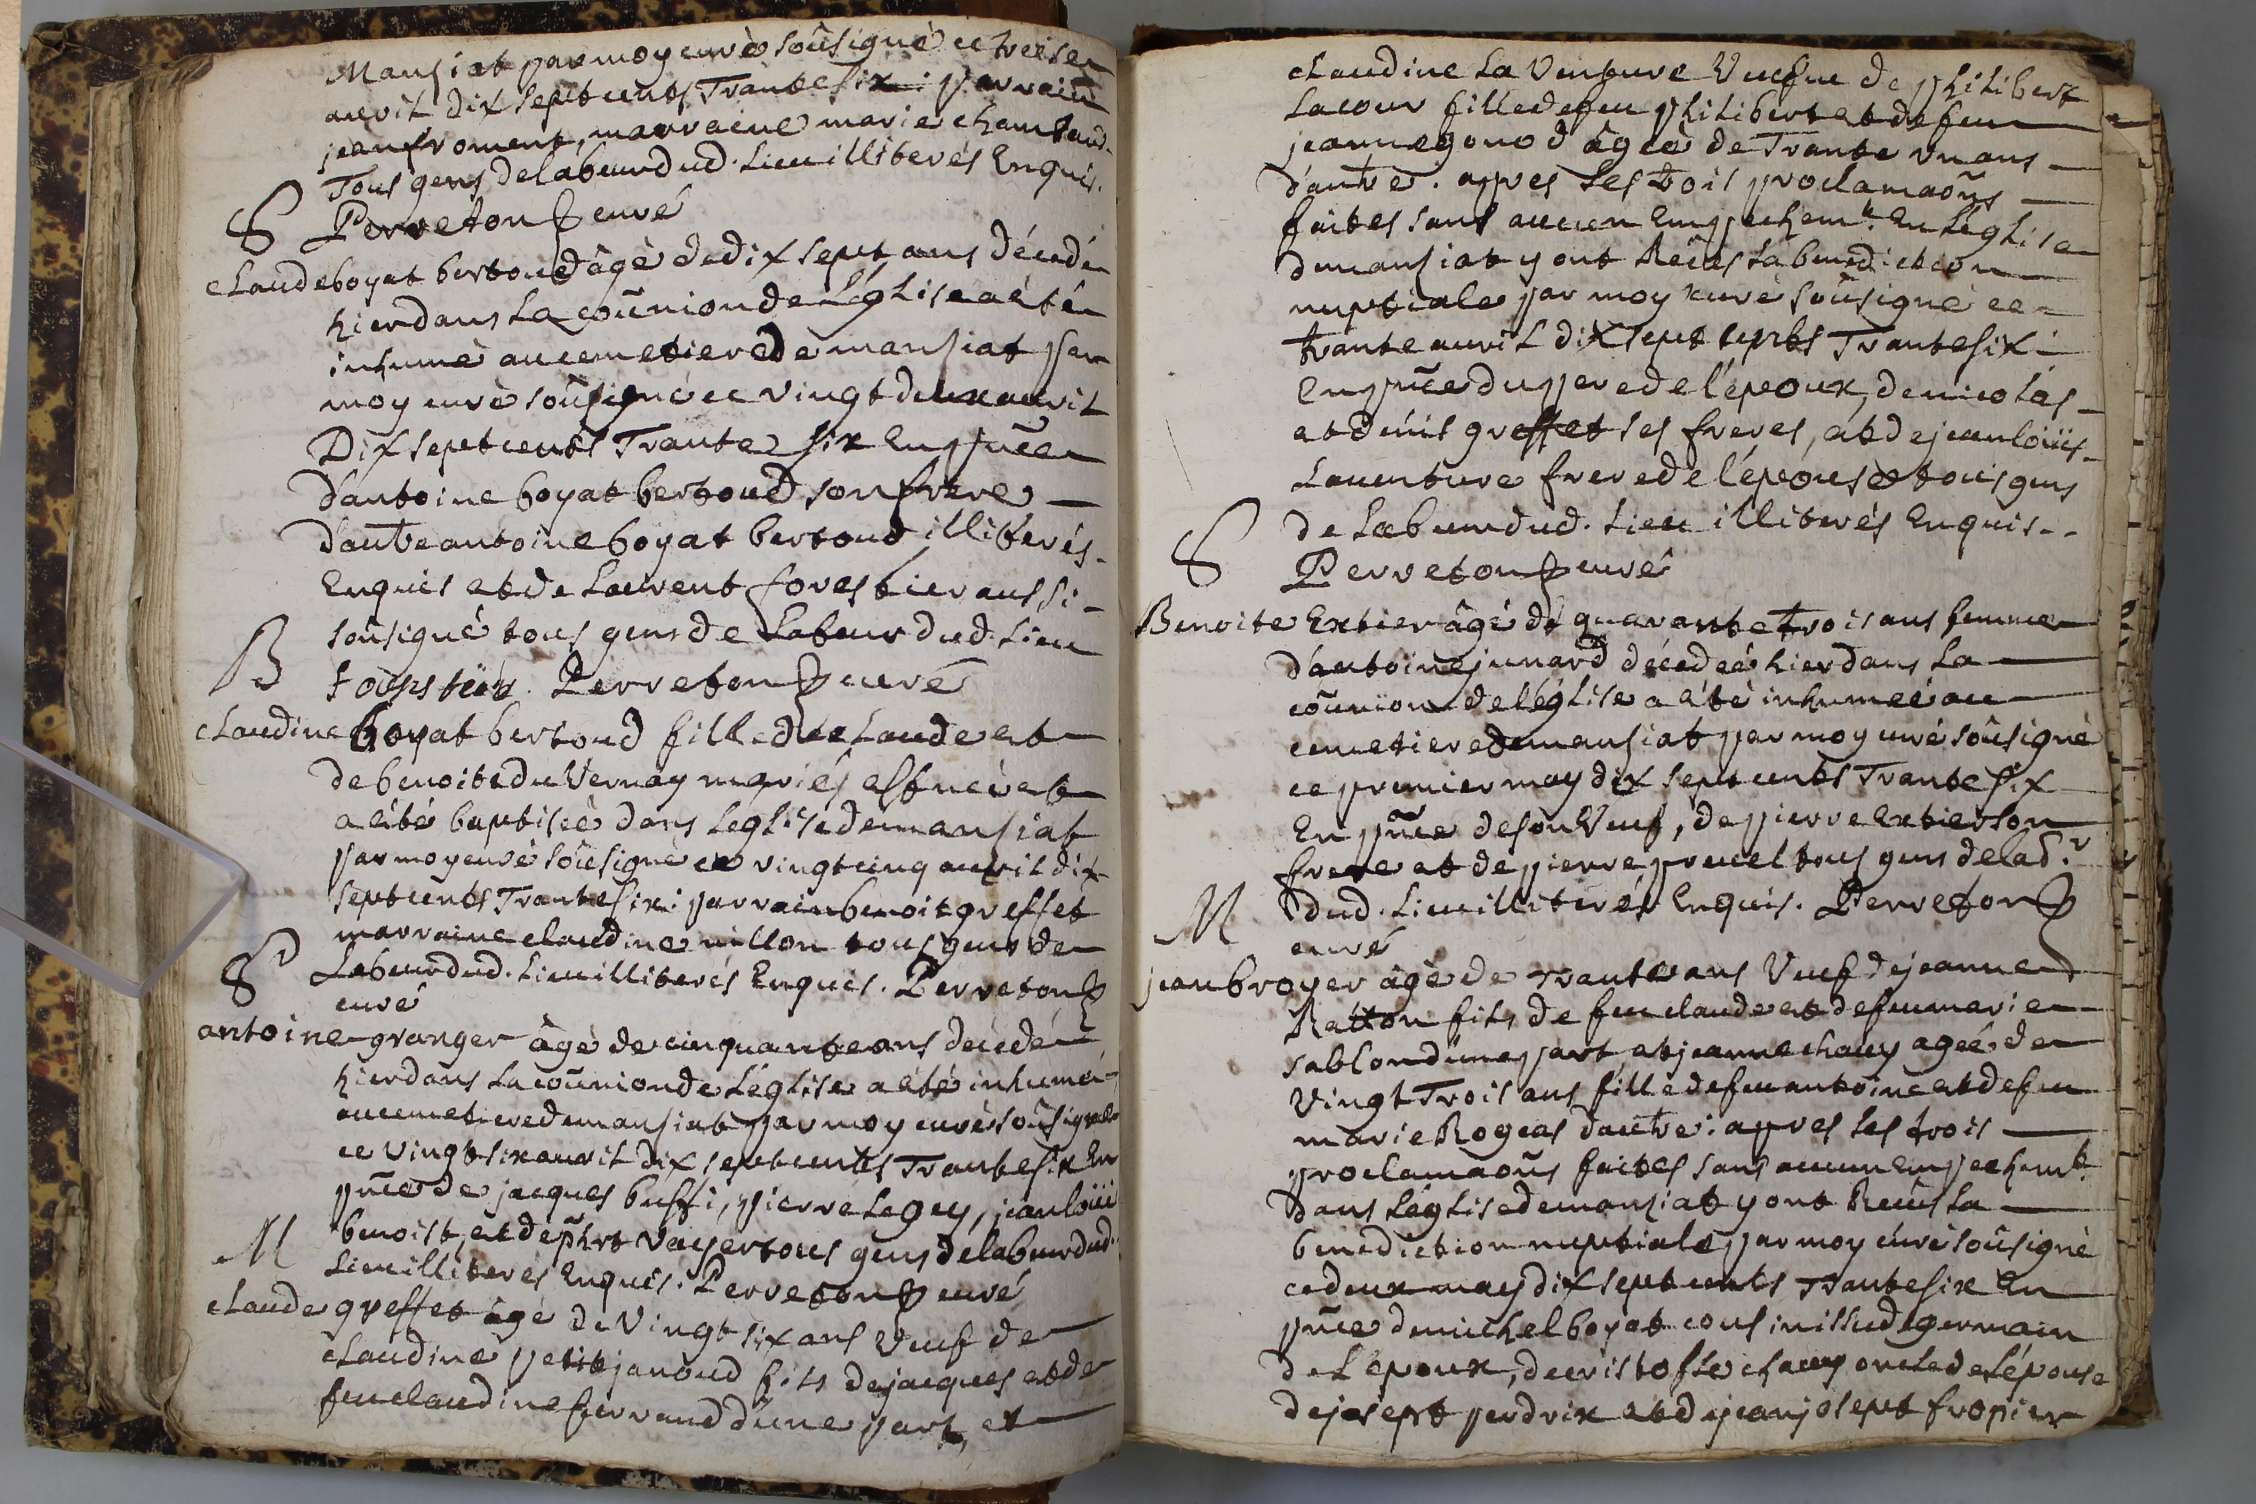 Mansiat par moy curé soûsigné ce treise
auvril dix sept cents Trante six : parrain
jean froment, marraine marie
Tous gens de labeur dud. Lieu illiterés Enquis.
S Perreton curé
claude boyat bertoud âgé de dix sept ans décédé
hier dans La coûnion de Léglise a été
inhumé au cemetiere de mansiat par
moy curé soûsigné ce vingt deux auvril
Dix sept cents Trante six En pñce
d'antoine boyat bertoud son frere
d'autre antoine boyat bertoud illiterés
Enquis et de Laurent forestier aussi
soûsigné tous gens de Labeur dud. Lieu
B Perreton curé
claudine boyat bertoud fille de claude et
de benoite du Vernay mariés est neé et
a été baptiseé dans Leglise de mansiat
par moy curé soûsigné ce vingt cinq auvril dix
sept cents Trante six : parrain benoit greffet
marraine claudine nillon tous gens de
Labeur dud. Lieu illiterés Enquis. Perreton
S curé
antoine granger âgé de cinquante ans décédé
hier dans La coûnion de Léglise a été inhumé
au cemetiere de mansiat par moy curé soûsigné
ce vingt six auvril dix sept cents Trante six En
pñce de jacques buffi, pierre Legey, jean loüis
benoist, et de phrt Vayer tous gens de labeur dud.
M Lieu illiterés Enquis. Perreton curé
claude greffet âgé de Vingt six ans Veuf de
claudine petit janoud fils de jacques et de
feu claudine ferrand d'une part, et
claudine La Venture Veufue de philibert
Lacour fille de feu philibert et de feu
jeanne gonod âgeé de Trante un ans
d'autre. apres Les trois proclamaoñs
faites sans aucun Empechemt. En Léglise
de mansiat y ont Réceus La benediction
nuptiale par moy curé soûsigné ce
trante auvril dix sept cents Trante six
En pñce du pere de l'époux, de nicolas
et denis greffet ses freres, et de jean loüis
Lauenture frere de l'épouse tous gens
de Labeur dud. Lieu illiterés Enquis..
S Perreton curé
Benoite Extier âgé de quarante Trois ans femme
d'antoine junard décédeé hier dans La
coûnion de léglise a été inhumeé au
cemetiere de mansiat par moy curé soûsigné
ce premier may dix sept cents Trante six
En pñce de son Veuf, de pierre Extier son
frere et de pierre pruel tous gens de lab.r
M dud. Lieu illiterés Enquis. Perreton
curé
jean broyer âgé de trante ans Veuf de jeanne
Ratton fils de feu claude et de feu marie
sablon d'une part et jeanne chauy ageé de
Vingt Trois ans fille de feu antoine et de feu
marie Rogeas d'autre : apres Les trois
proclamaoñs faites sans aucun Empechemt.
Dans Léglise de mansiat y ont Receûs La
benediction nuptiale par moy curé soûsigné
ce deux may dix sept cents Trante six En
pñce de michel boyat cousin issu de germain
de L'époux, de cristofle chauy oncle de Lépouse
de josept perdrix et de jean josept fropier